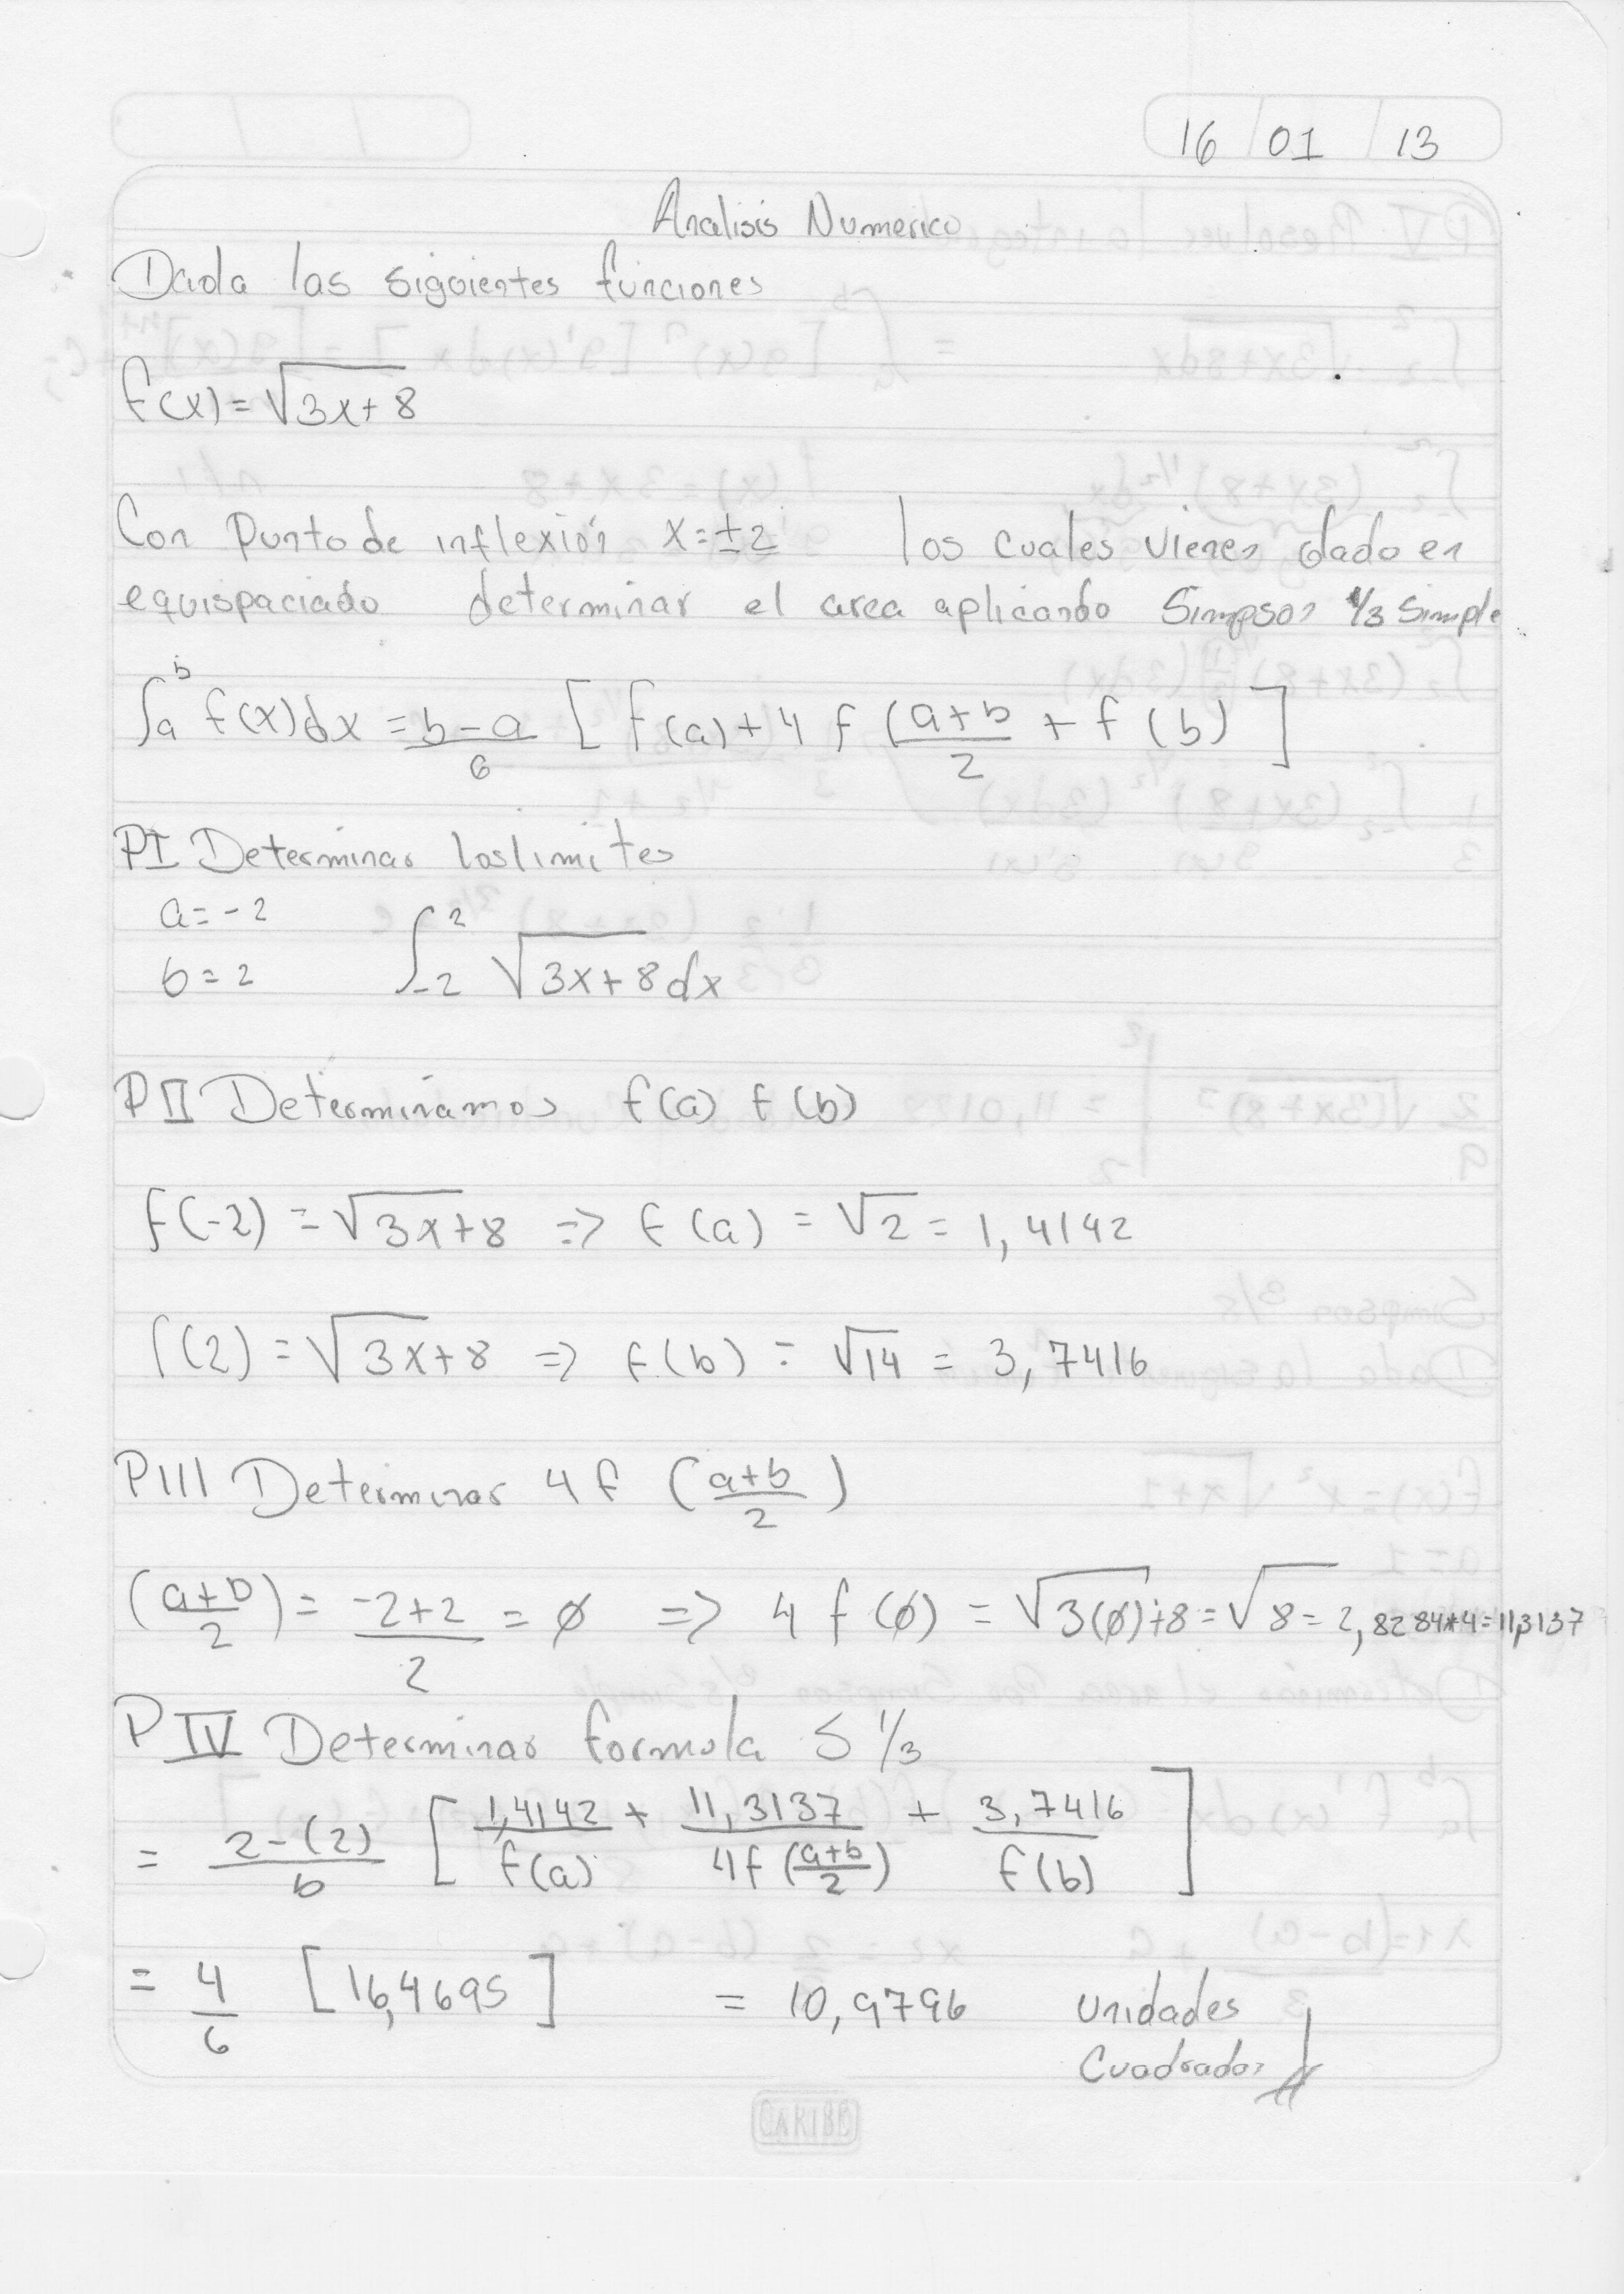 16 / 01 / 13
Analisis Numerico
Dada las siguientes funciones
f(x) = √3x+8
Con Punto de inflexión x=±2 los cuales vienen dado en
equispaciado determinar el area aplicando Simpson 1/3 Simple
∫a^b f(x)dx = b-a/6 [ f(a) + 4 f (a+b/2 + f (b) ]
PI Determinar los limites
a=-2
b=2 ∫-2^2 √3x+8 dx
PII Determinamos f(a) f(b)
f(-2) = √3x+8 => f(a) = √2 = 1,4142
f(2) = √3x+8 => f(b) = √14 = 3,7416
PIII Determinar 4f (a+b/2)
(a+b/2) = -2+2/2 = ∅ => 4 f(∅) = √3(∅)+8 = √8 = 2,8284*4=11,3137
PIV Determinar formula S 1/3
= 2-(2)/6 [ 1,4142/f(a) + 11,3137/4f(a+b/2) + 3,7416/f(b) ]
= 4/6 [16,4695] = 10,9796 unidades
Cuadradas
CARIBE